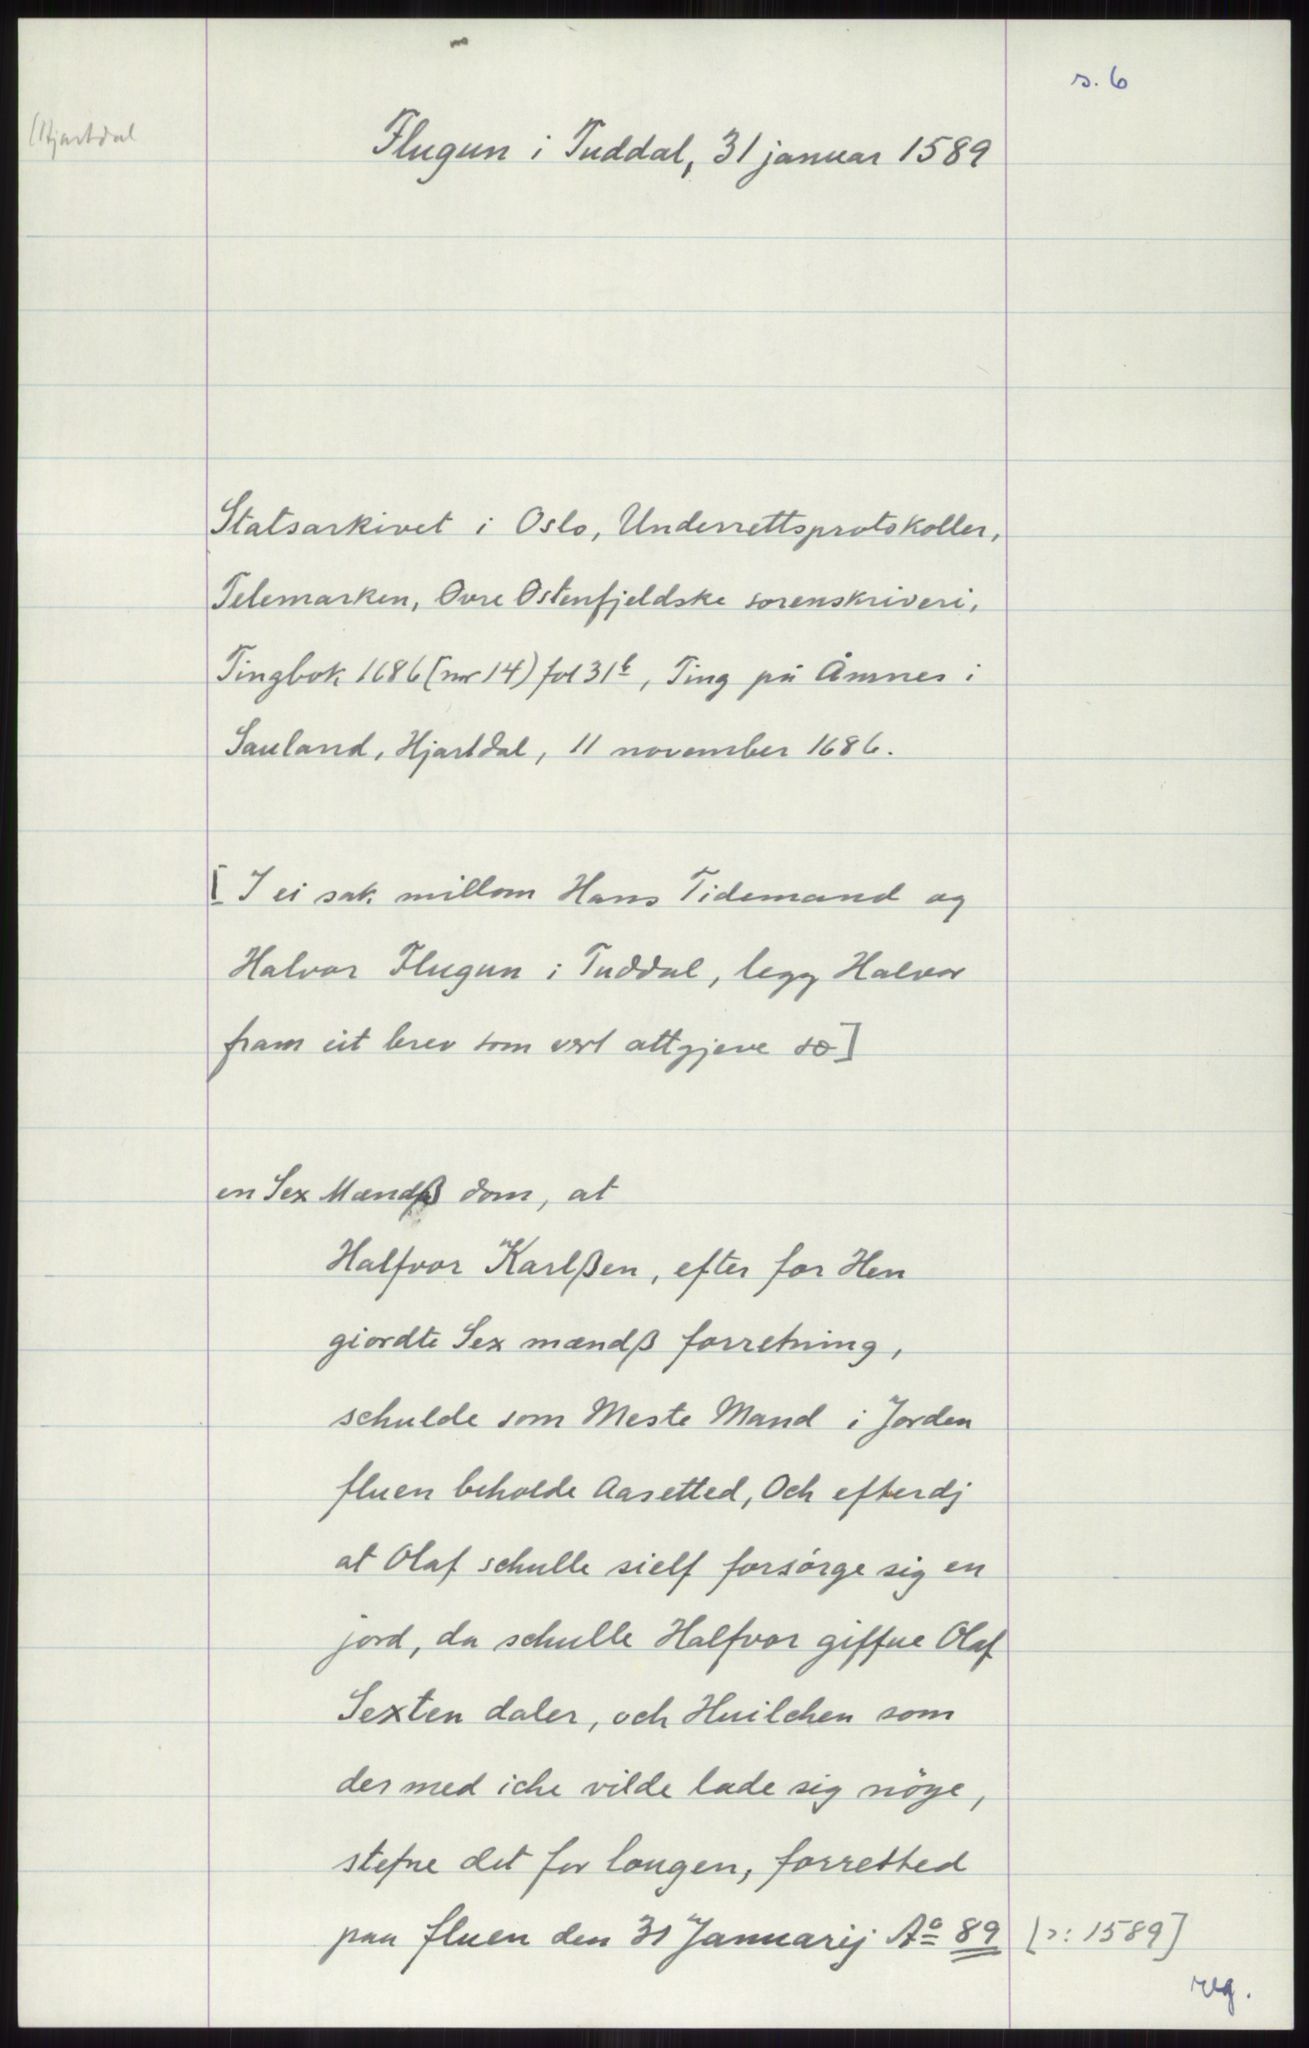 s. 6
(Hjartdal
Flugun i Tuddal, 31 januar 1589
Statsarkivet i Oslo, Underrettsprotokoller,
Telemarken, Øvre Østenfjeldske sorenskriveri,
Tingbok 1686 [nr 14) fol 31b, Ting på Åmnes i
Sauland, Hjartdal, 11 november 1686.
[I ei sak millom Hans Tidemand og
Halvor Flugun i Tuddal, legg Halvor
fram eit brev som vert attgjeve so]
en Sex Mændß dom, at
Halfvor Karlßen, efter for Hen
giordte Sex mændß forretning,
schulde som Meste Mand i Jorden
fluen beholde Aasetted, Och efterdj
at Olaf schulle sielf forsörge sig en
jord, da schulle Halfvor giffue Olaf
Sexten daler, och Huilchen som
der med iche vilde lade sig nöye,
stefne det for lougen, forretted
paa fluen den 31 Januarij Aº 89 [ɔ: 1589]
reg.